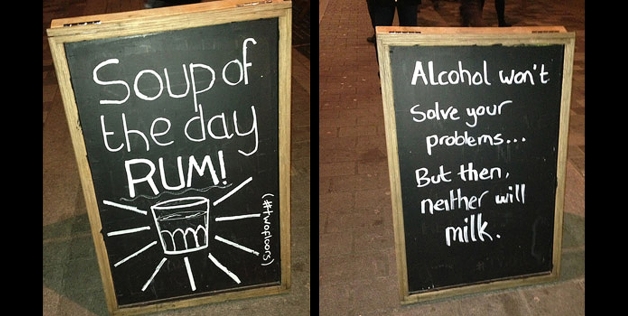 Soup of
the day
RUM!
(#twofloors)
Alcohol won't
Solve your
problems...
But then,
neither will
milk.